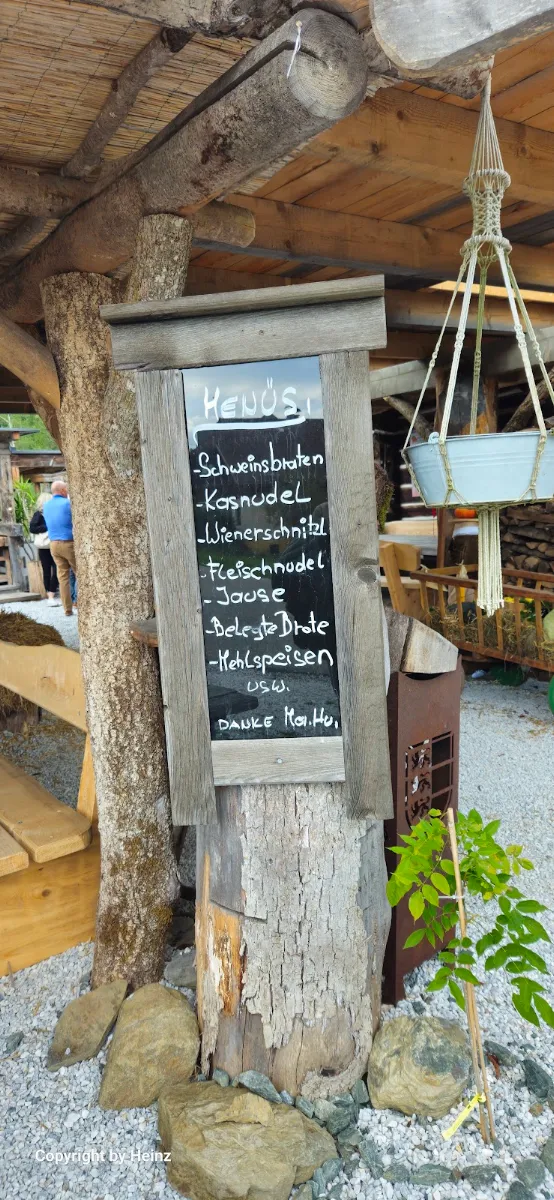 MENÜS!
-Schweinsbraten
-Kasnudel
-Wienerschnitzl
-Fleischnudel
-Jause
-BelegteBrote
-Mehlspeisen
USW.
DANKE Ma.Hu.
Copyright by Heinz